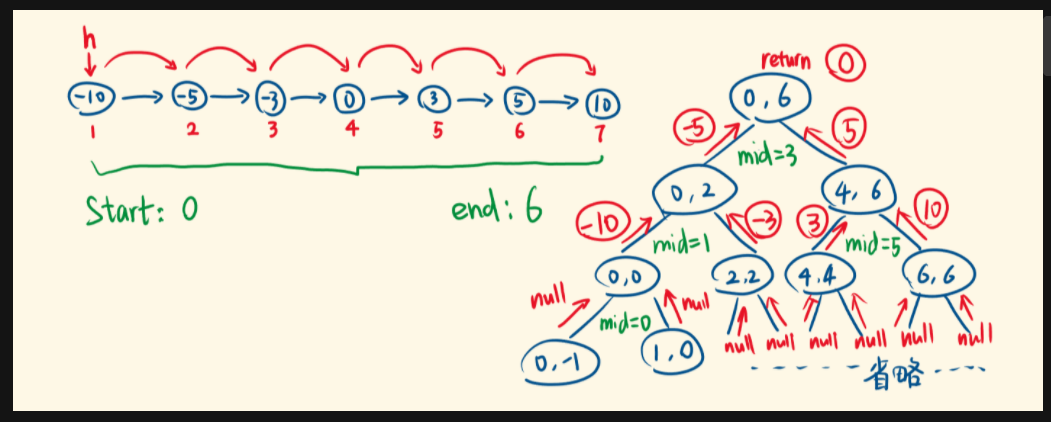 h
-10 → -5 → -3 → 0 → 3 → 5 → 10
1 2 3 4 5 6 7
Start: 0 end: 6
return 0
0, 6
-5 mid=3 5
0, 2 4, 6
-10 mid=1 -3 3 mid=5 10
0,0 2,2 4,4 6,6
null mid=0 null
0,-1 1,0 null null null null null null
省略